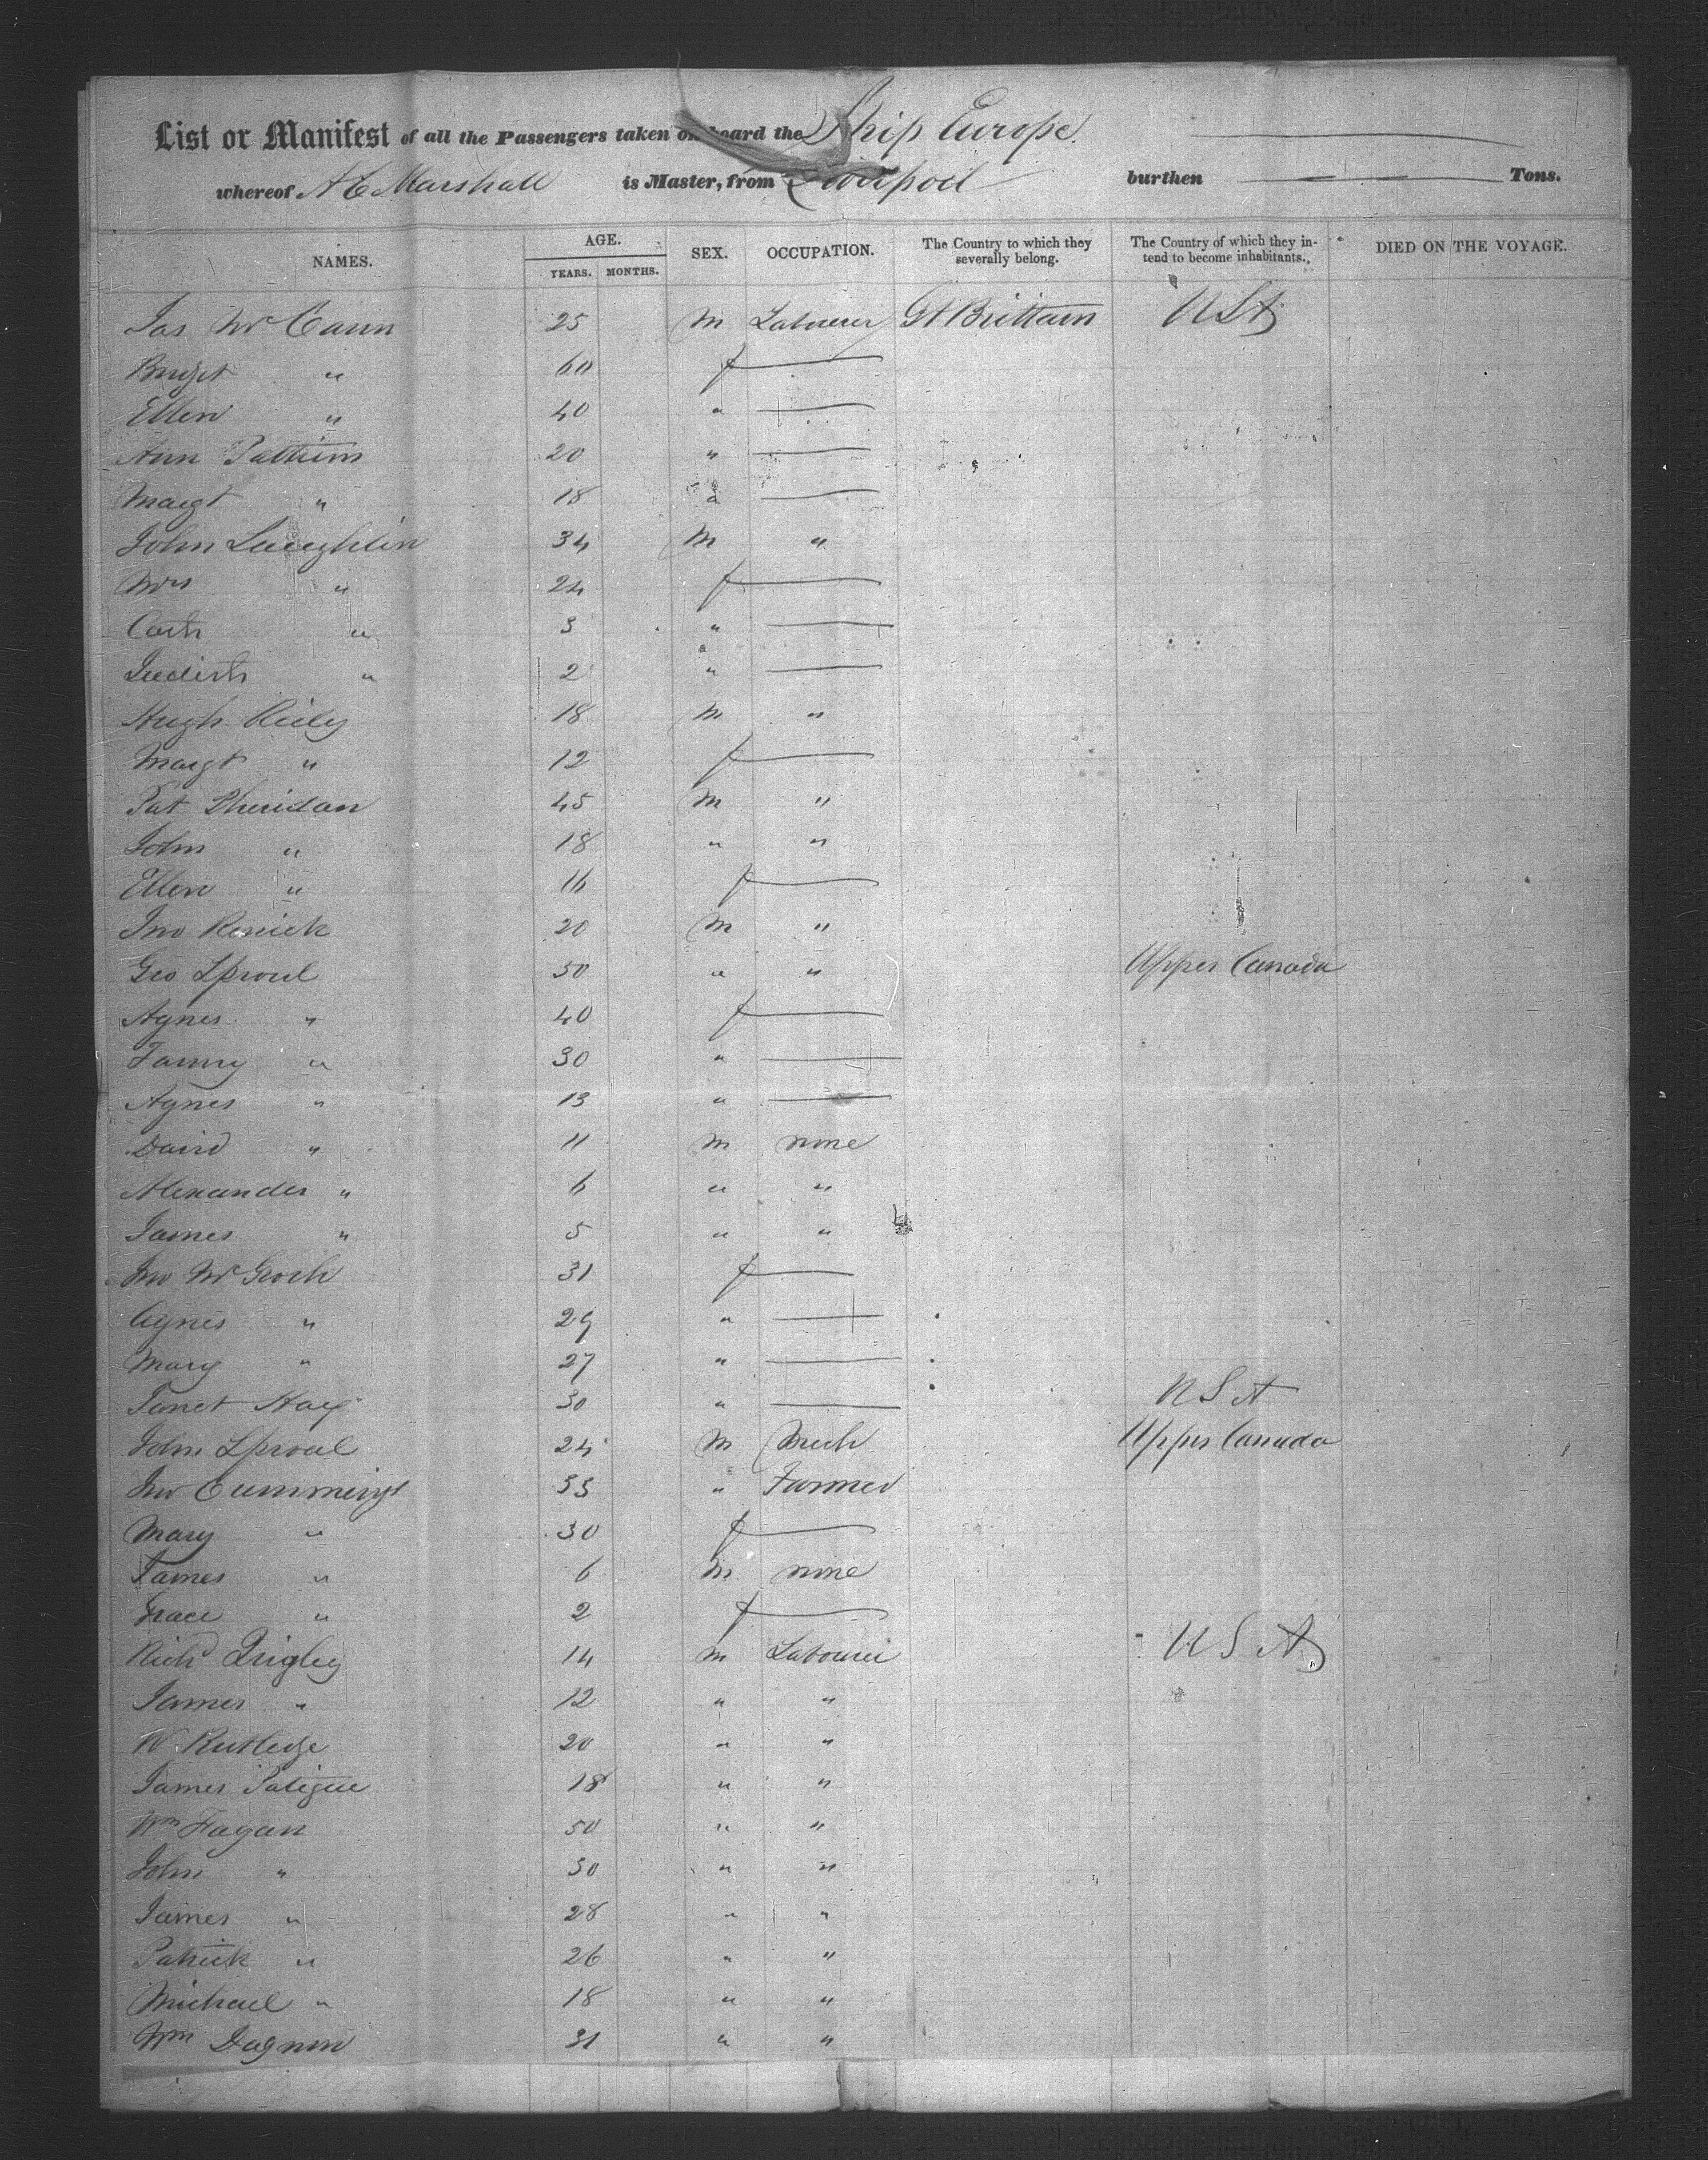 List or Manifest of all the Passengers taken on board the Ship Europe.
whereof A E Marshall is Master, from Liverpool burthen Tons.
NAMES. AGE. SEX. OCCUPATION. The Country to which they severally belong. The Country of which they intend to become inhabitants. DIED ON THE VOYAGE.
YEARS. MONTHS.
Jas Mc Cann 25 M Labourer Gt Brittain USA
Bridget " 60 f
Ellen " 40 "
Ann 20 "
Margt " 18 "
John Laughlin 34 M "
Mrs " 24 f
Cath " 3 "
Judith " 2 "
Hugh Rily 18 M "
Margt " 12 f
Pat Sheridan 45 M "
John " 18 " "
Ellen " 16 f
Jno Renick 20 M "
Geo Sproul 50 " " Upper Canada
Agnes " 40 f
Fanny " 30 "
Agnes " 13 "
David " 11 M none
Alexander " 6 " "
James " 5 " "
Jno 31 f
Agnes " 29 "
Mary " 27 "
Janet Hay 30 " U S A
John Sproul 24 M Mech Upper Canada
Jno Cummings 33 " Farmer
Mary " 30 f
James " 6 M none
Grace " 2 f
Richd Quigley 14 M Labourer U S A
James " 12 " "
W Rutledge 20 " "
James 18 " "
Wm Fagan 50 " "
John " 30 " "
James " 28 " "
Patrick " 26 " "
Michael " 18 " "
Wm Dagnon 31 " "